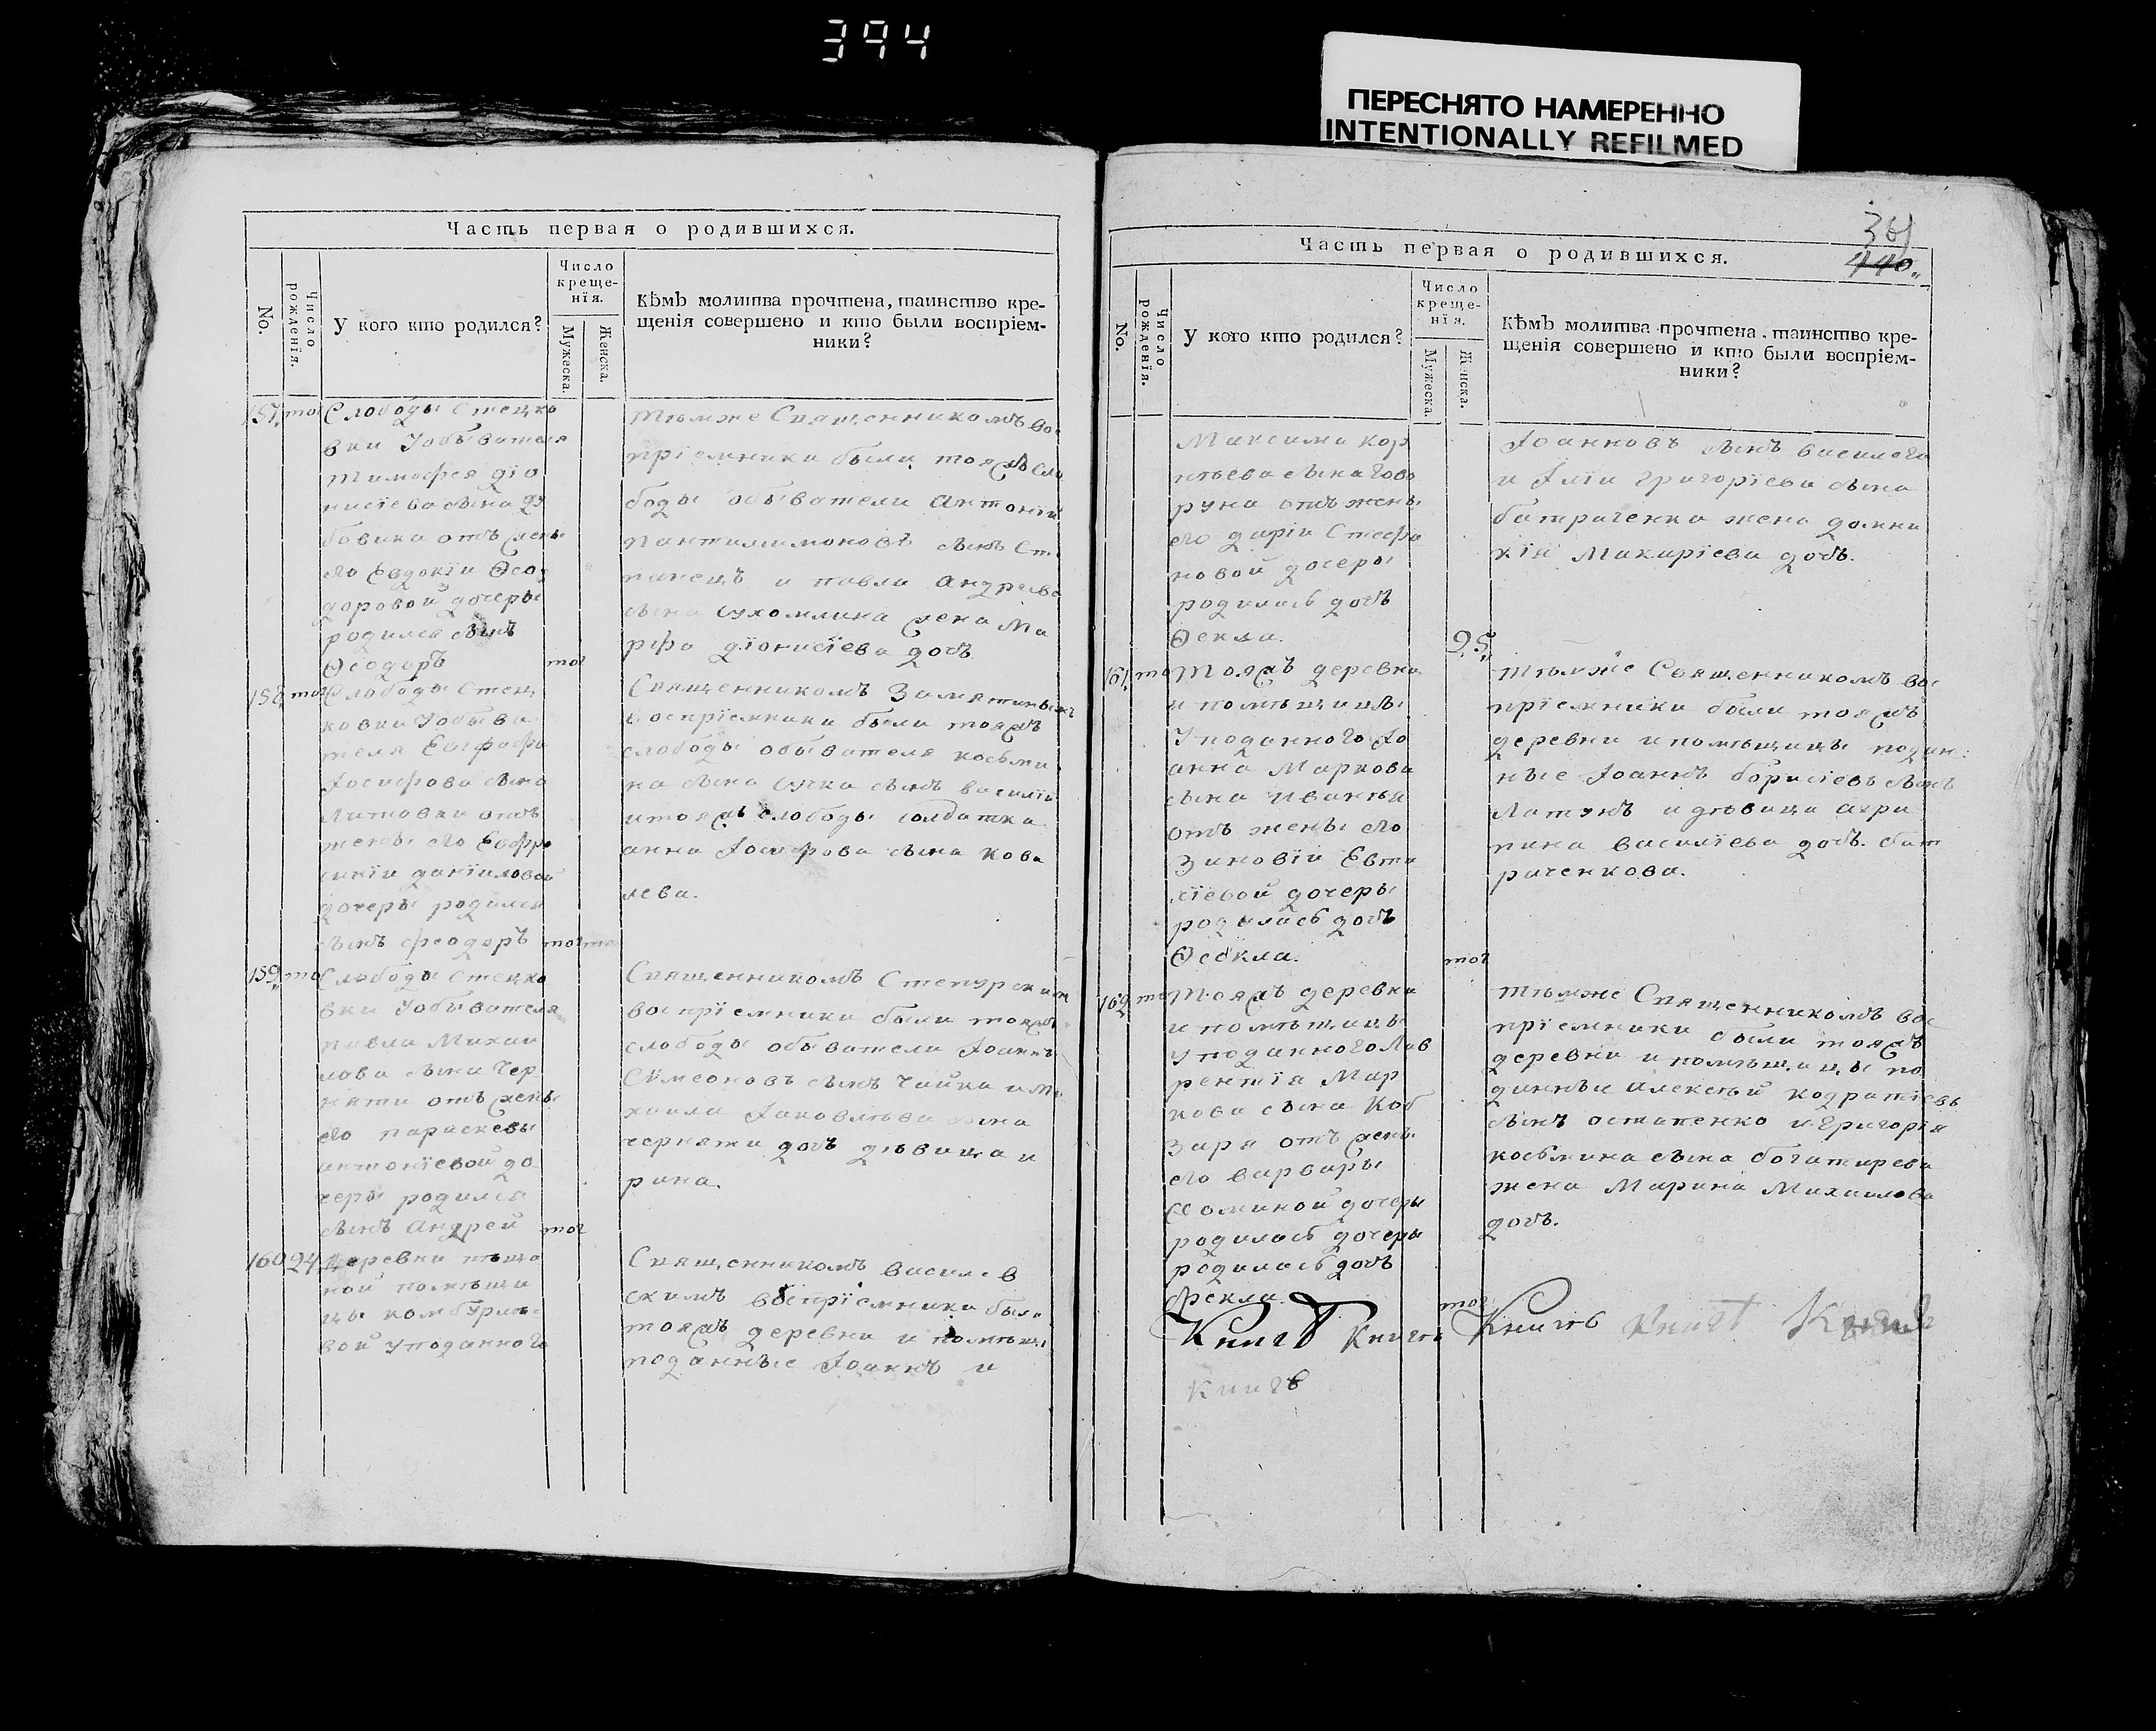 394
ПЕРЕСНЯТО НАМЕРЕННО
INTENTIONALLY REFILMED
Часть первая о родившихся.
No.
Число рожденїя.
У кого кто родился?
Число креще-
нїя.
Мужеска.
Женска.
Кѣмъ молитва прочтена, таинство кре-
щенія совершено и кто были воспріем-
ники?
157
Слободы Стецко
вки Уобывателя
Тимофея Діо
нисїева сына Ду
бовика отъ жены
его Евдокїи Ѳео
доровой дочеры
родился сынъ
Ѳеодоръ
Тѣмже Священникомъ во
прїемники были тояжъ сло
боды обыватели Антонїй
Пантилимоновъ сынъ Ст
панецъ и павла Андреева
сына Сухомлина жена Ма
рфа Дїонисїева дочь
158
Слободы Стец
ковки Уобыва
теля Евграфа
Іосифова сына
Литовки отъ
жены его Евфро
синїи данїиловой
дочеры родился
сынъ феодоръ
Священникомъ Замятинымъ
воспрїемники были тояжъ
слободы обывателя косьми
на сына сучка сынъ василїй
итояжъ слободы солдатка
анна Іосифова сына Кова
лева.
159
Слободы Стецко
вки Уобывателя
павла Михаи
лова сына Чер
няти отъ жены
его параскевы
антонїевой до
черы родился
сынъ Андрей
Священникомъ
воспрїемники были тояжъ
слободы обыватели Іоаннъ
Сѵмеоновъ сынъ Чайка и Ми
хаила Іаковлѣва сына
черняти дочь дѣвица и
рина.
160 24
Деревни пѣща
ной помѣщи
цы комбурле
вой Уподанного
Священникомъ василев
скимъ воспрїемники были
тояжъ деревни и помѣщи
поданные Іоаннъ и
Часть первая о родившихся.
361
440
No.
Число рожденїя.
У кого кто родился?
Число
креще-
нїя.
Мужеска.
Женска.
Кѣмъ молитва прочтена, таинство кре-
щенія совершено и кто были воспріем-
ники?
Максима Кор
нѣева сына Гово
руна отъ жены
его дарїи Стефа
новой дочеры
родилась дочь
Ѳекла.
25
Іоанновъ сынъ василего
и Илїи григорїева сына
батраченка жена домни
кїя Макарїева дочь.
161
Тояжъ деревни
и помѣщицы
Уподанного Іо
анна Маркова
сына
отъ жены его
Зиновїи Евти
хїевой дочеры
родилась дочь
Ѳеокла.
Тѣмже Священникомъ вос
прїемники были тояжъ
деревни ипомѣщицы подан
ные Іоаннъ борисїевъ сынъ
Латунъ и дѣвица агри
пина василїева дочь. бат
раченкова.
162
Тояжъ деревни
и помѣщицы
Уподанного Лав
рентїя Мар
кова сына Коб
заря отъ жены
его варвары
Ѳоминой дочеры
родилась дочеры
родилась дочь
фекла.
Тѣмже Священникомъ вос
прїемники были тояжъ
деревни и помѣщицы по
данные Алексѣй кодратїевъ
сынъ остапенко игригорїя
косьмина сына богатирева
жена Марина Михаилова
дочь.